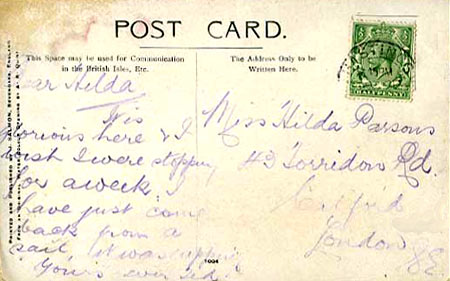 POST CARD.
This Space may be used for Communication
in the British Isles, Etc.
The Address Only to be
Written Here.
HALFPENNY
Dear Hilda
Tis
glorious here & I
wish I were stopping
for a week. I
have just come
back from a
sail, it was ripping
Yours ever
Miss Hilda Parsons
43 Torridon Rd.
Catford
London
SE
1004